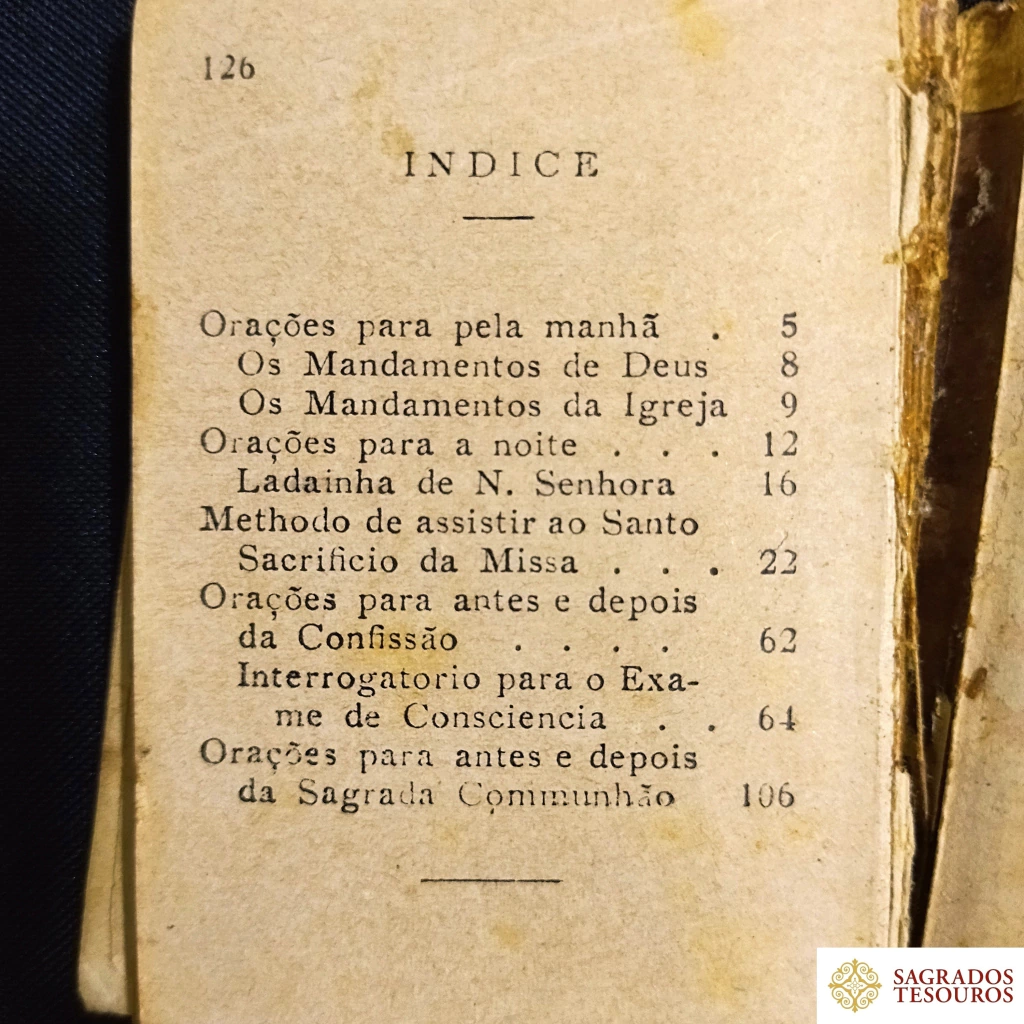 126
INDICE
Orações para pela manhã . 5
Os Mandamentos de Deus 8
Os Mandamentos da Igreja 9
Orações para a noite . . . 12
Ladainha de N. Senhora 16
Methodo de assistir ao Santo
Sacrificio da Missa . . . 22
Orações para antes e depois
da Confissão . . . . 62
Interrogatorio para o Exa-
me de Consciencia . . 64
Orações para antes e depois
da Sagrada Communhão 106
SAGRADOS
TESOUROS